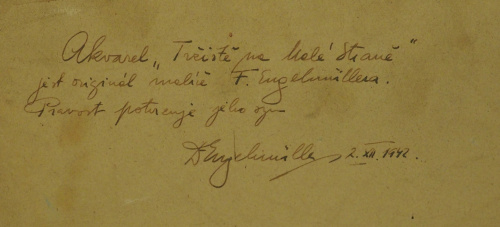 Akvarel „Tržiště na Malé Straně“
jest originál malíře F. Engelmüllera.
Pravost potvrzuje jeho syn
Engelmüller 2. XII. 1942.